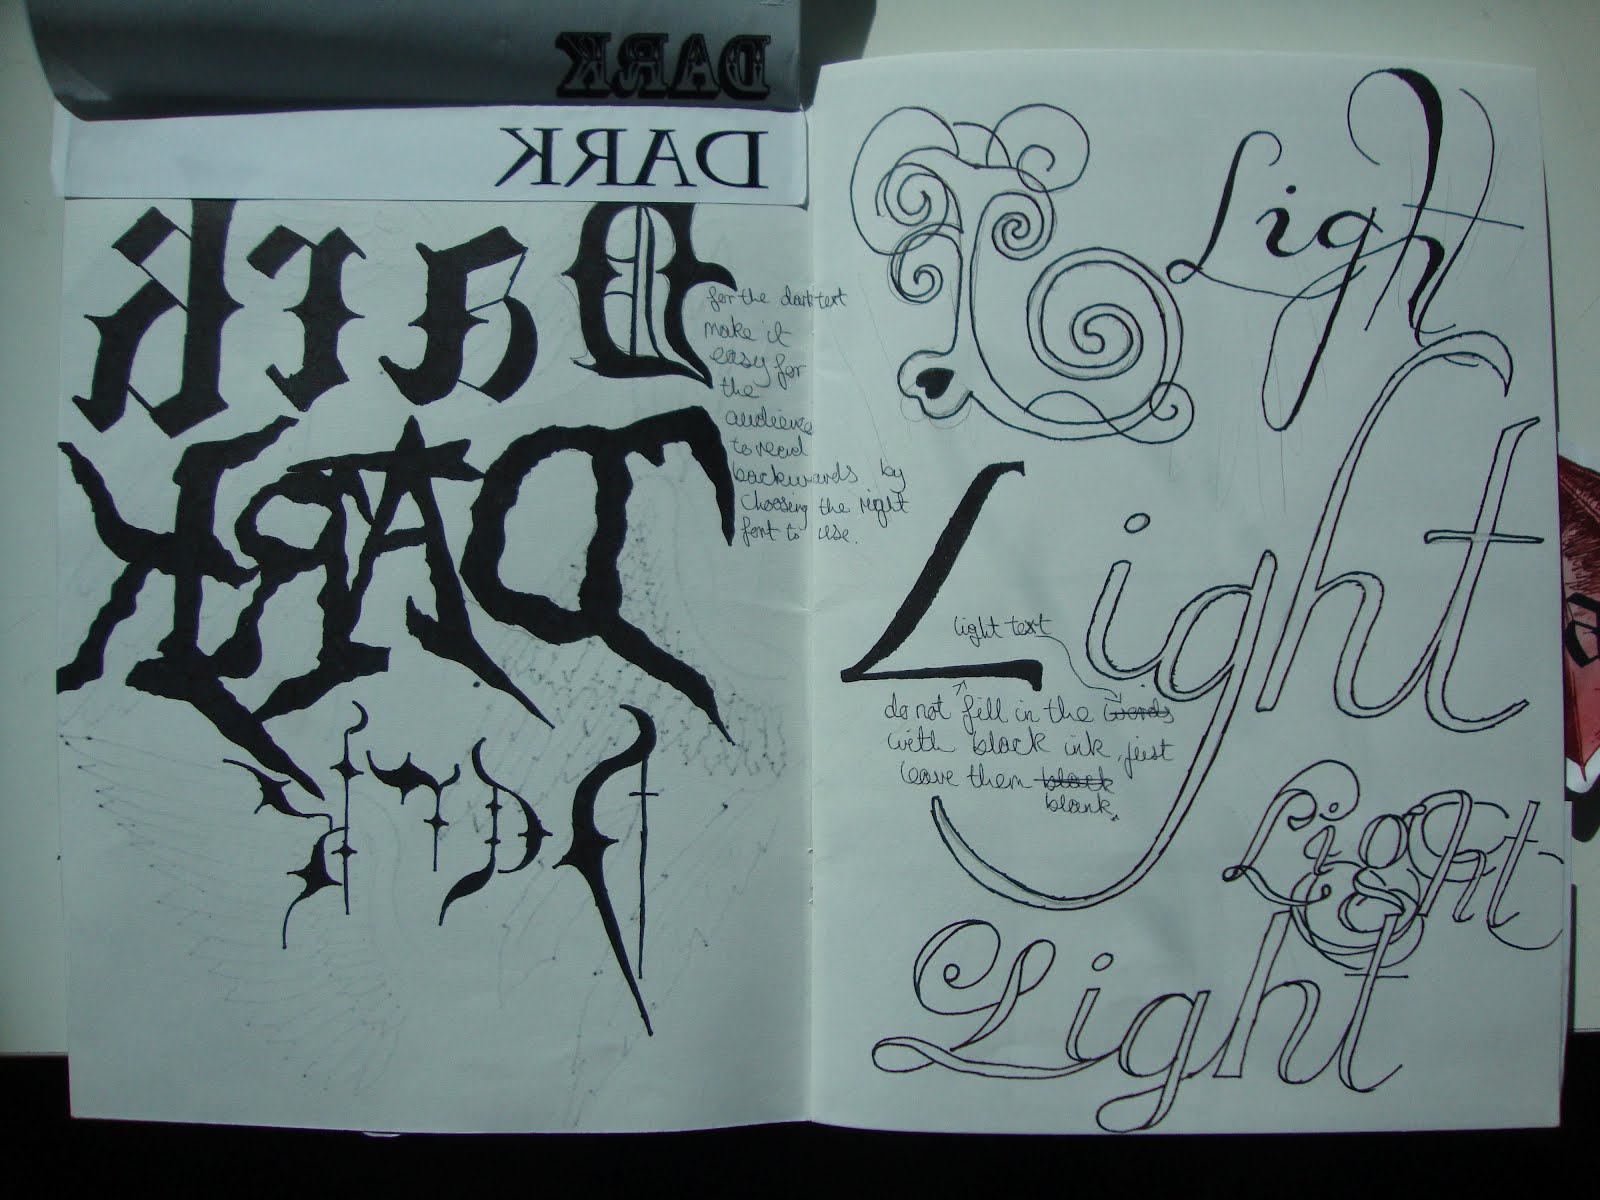 DARK
DARK
Dark
DARK
Dark
for the dark text
make it
easy for
the
audience
to read
backwards by
choosing the right
font to use.
L
Light
Light
light text
do not fill in the words
with black ink, just
leave them black
blank.
Light
Light